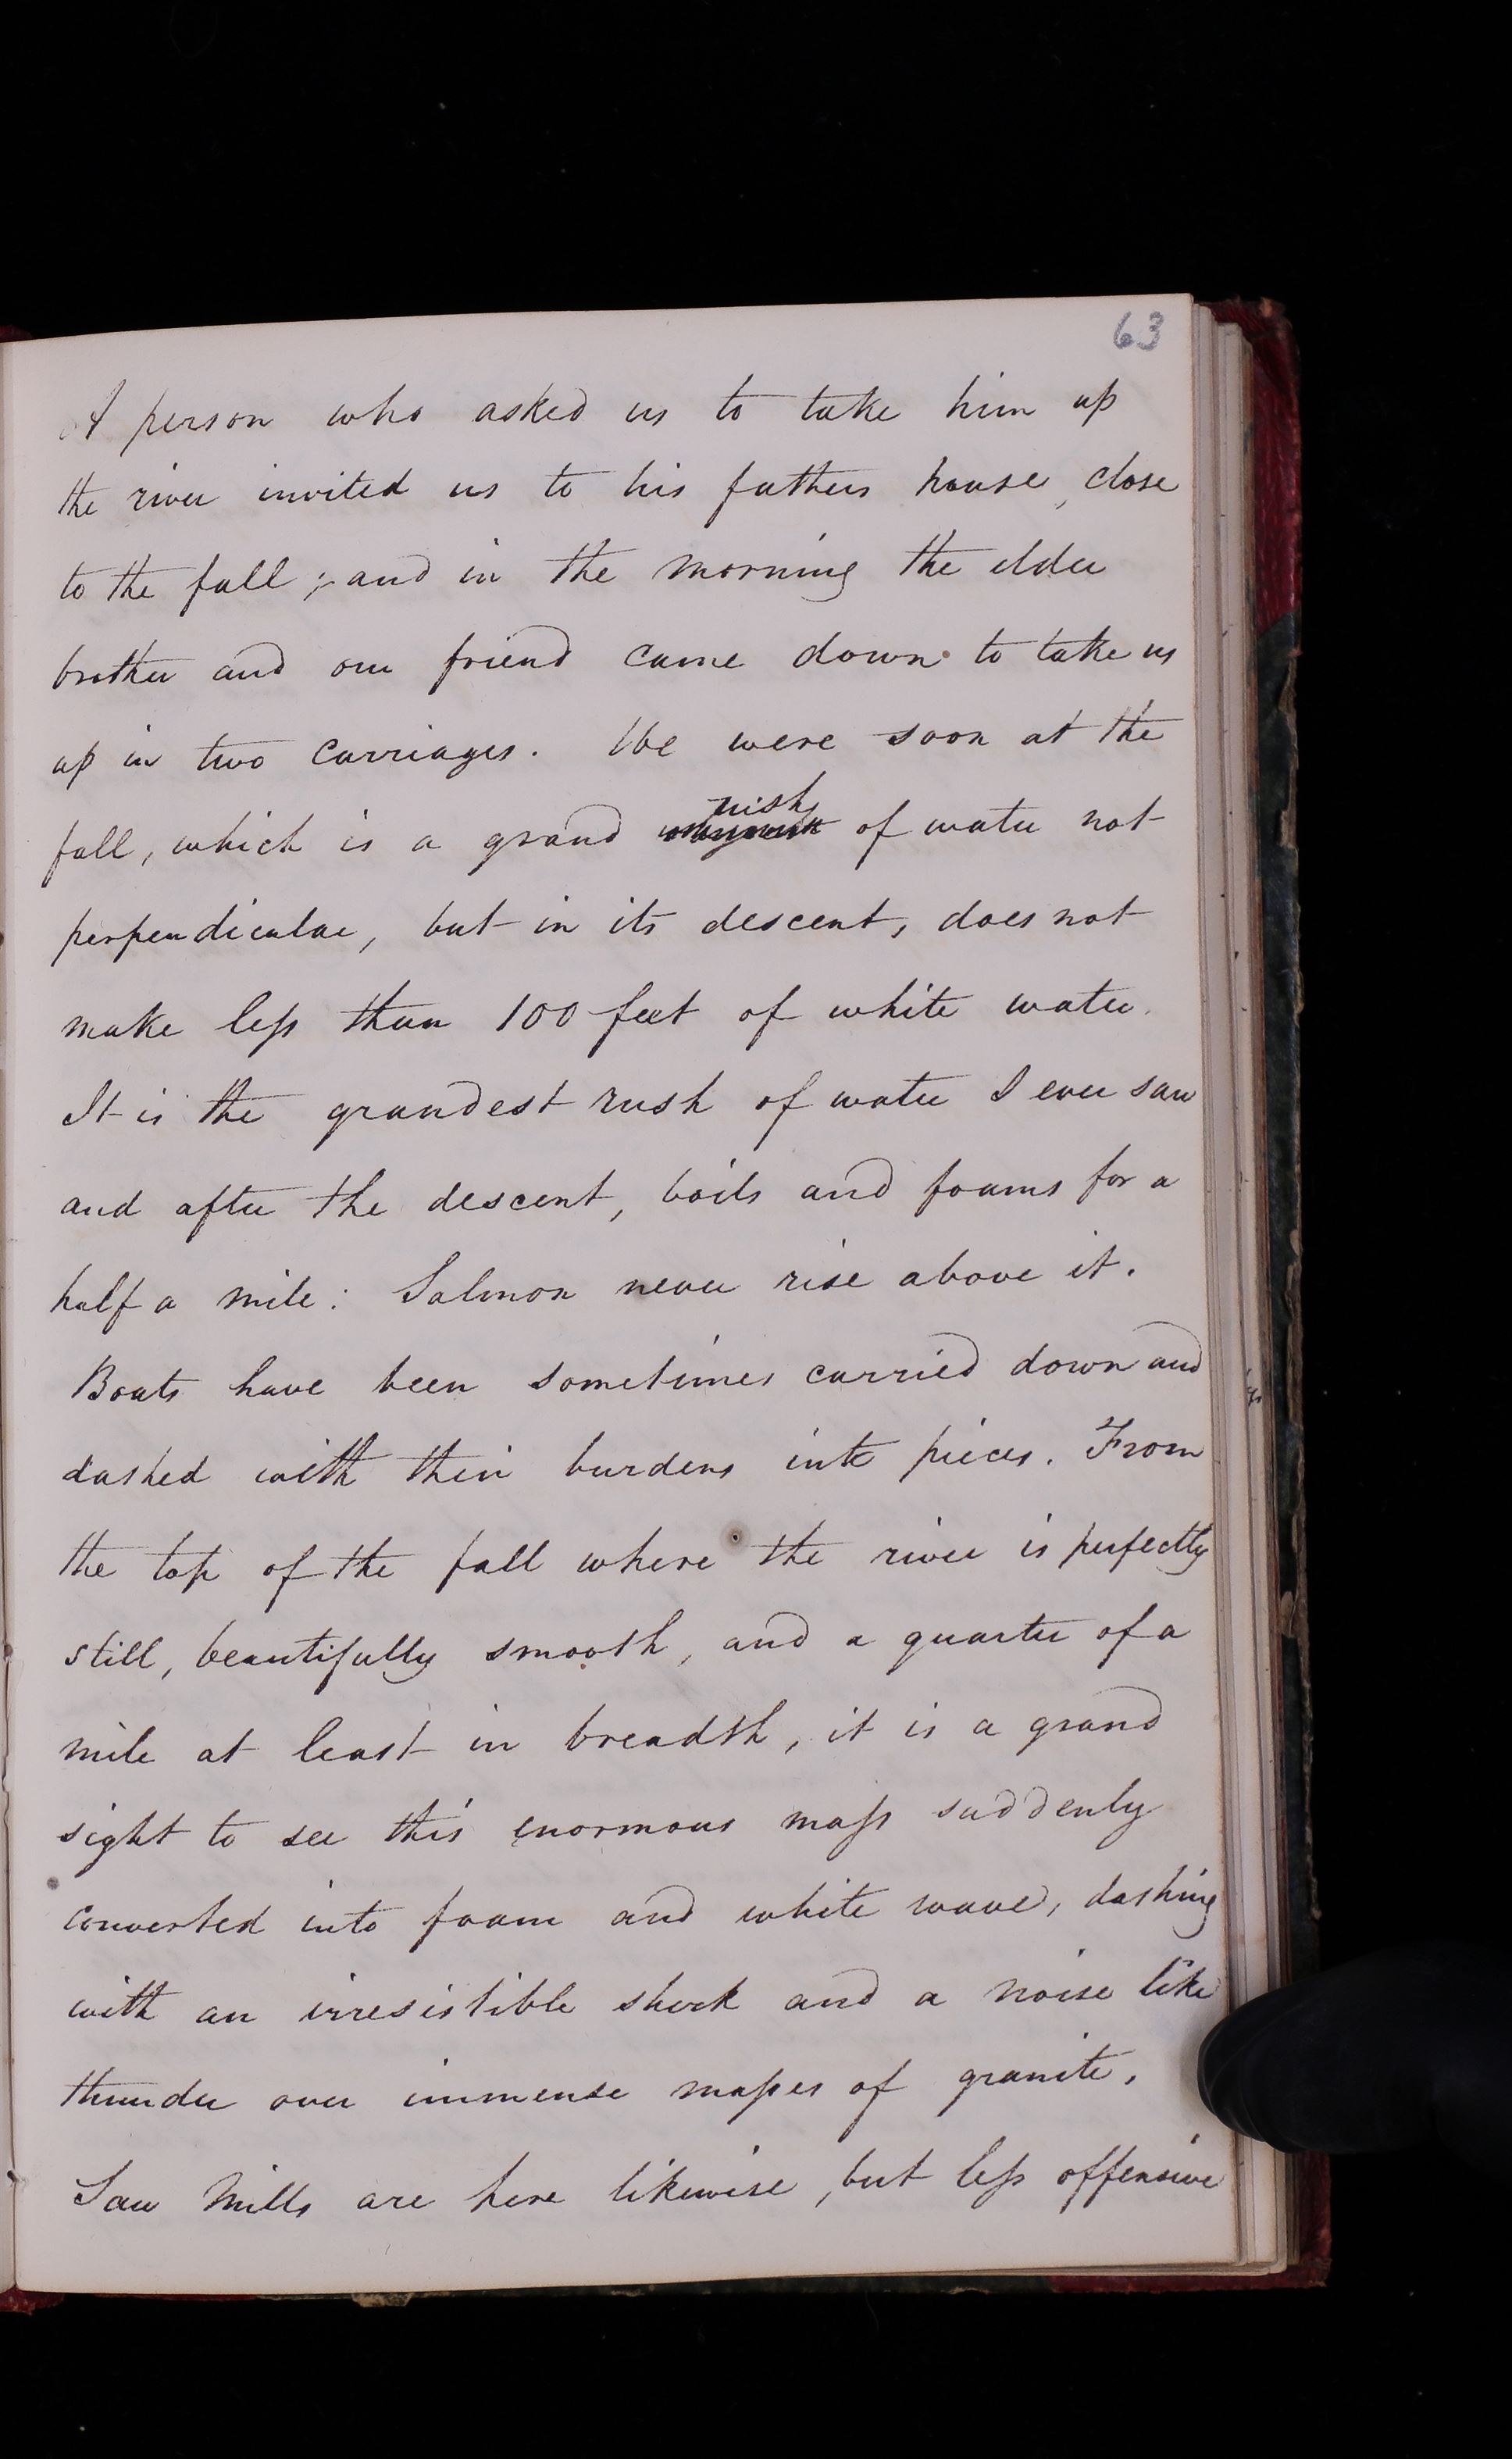 63
A person who asked us to take him up
the river invited us to his fathers house, close
to the fall; and in the morning the elder
brother and our friend came down to take us
up in two carriages. We were soon at the
rush
fall, which is a grand of water not
perpendicular, but in its descent, does not
make less than 100 feet of white water.
It is the grandest rush of water I ever saw
and after the descent, boils and foams for a
half a mile: Salmon never rise above it.
Boats have been sometimes carried down and
dashed with their burdens into pieces. From
the top of the fall where the river is perfectly
still, beautifully smooth, and a quarter of a
mile at least in breadth, it is a grand
sight to see this enormous mass suddenly
converted into foam and white wave, dashing
with an irresistible shock and a noise like
thunder over immense masses of granite.
Saw Mills are here likewise, but less offensive